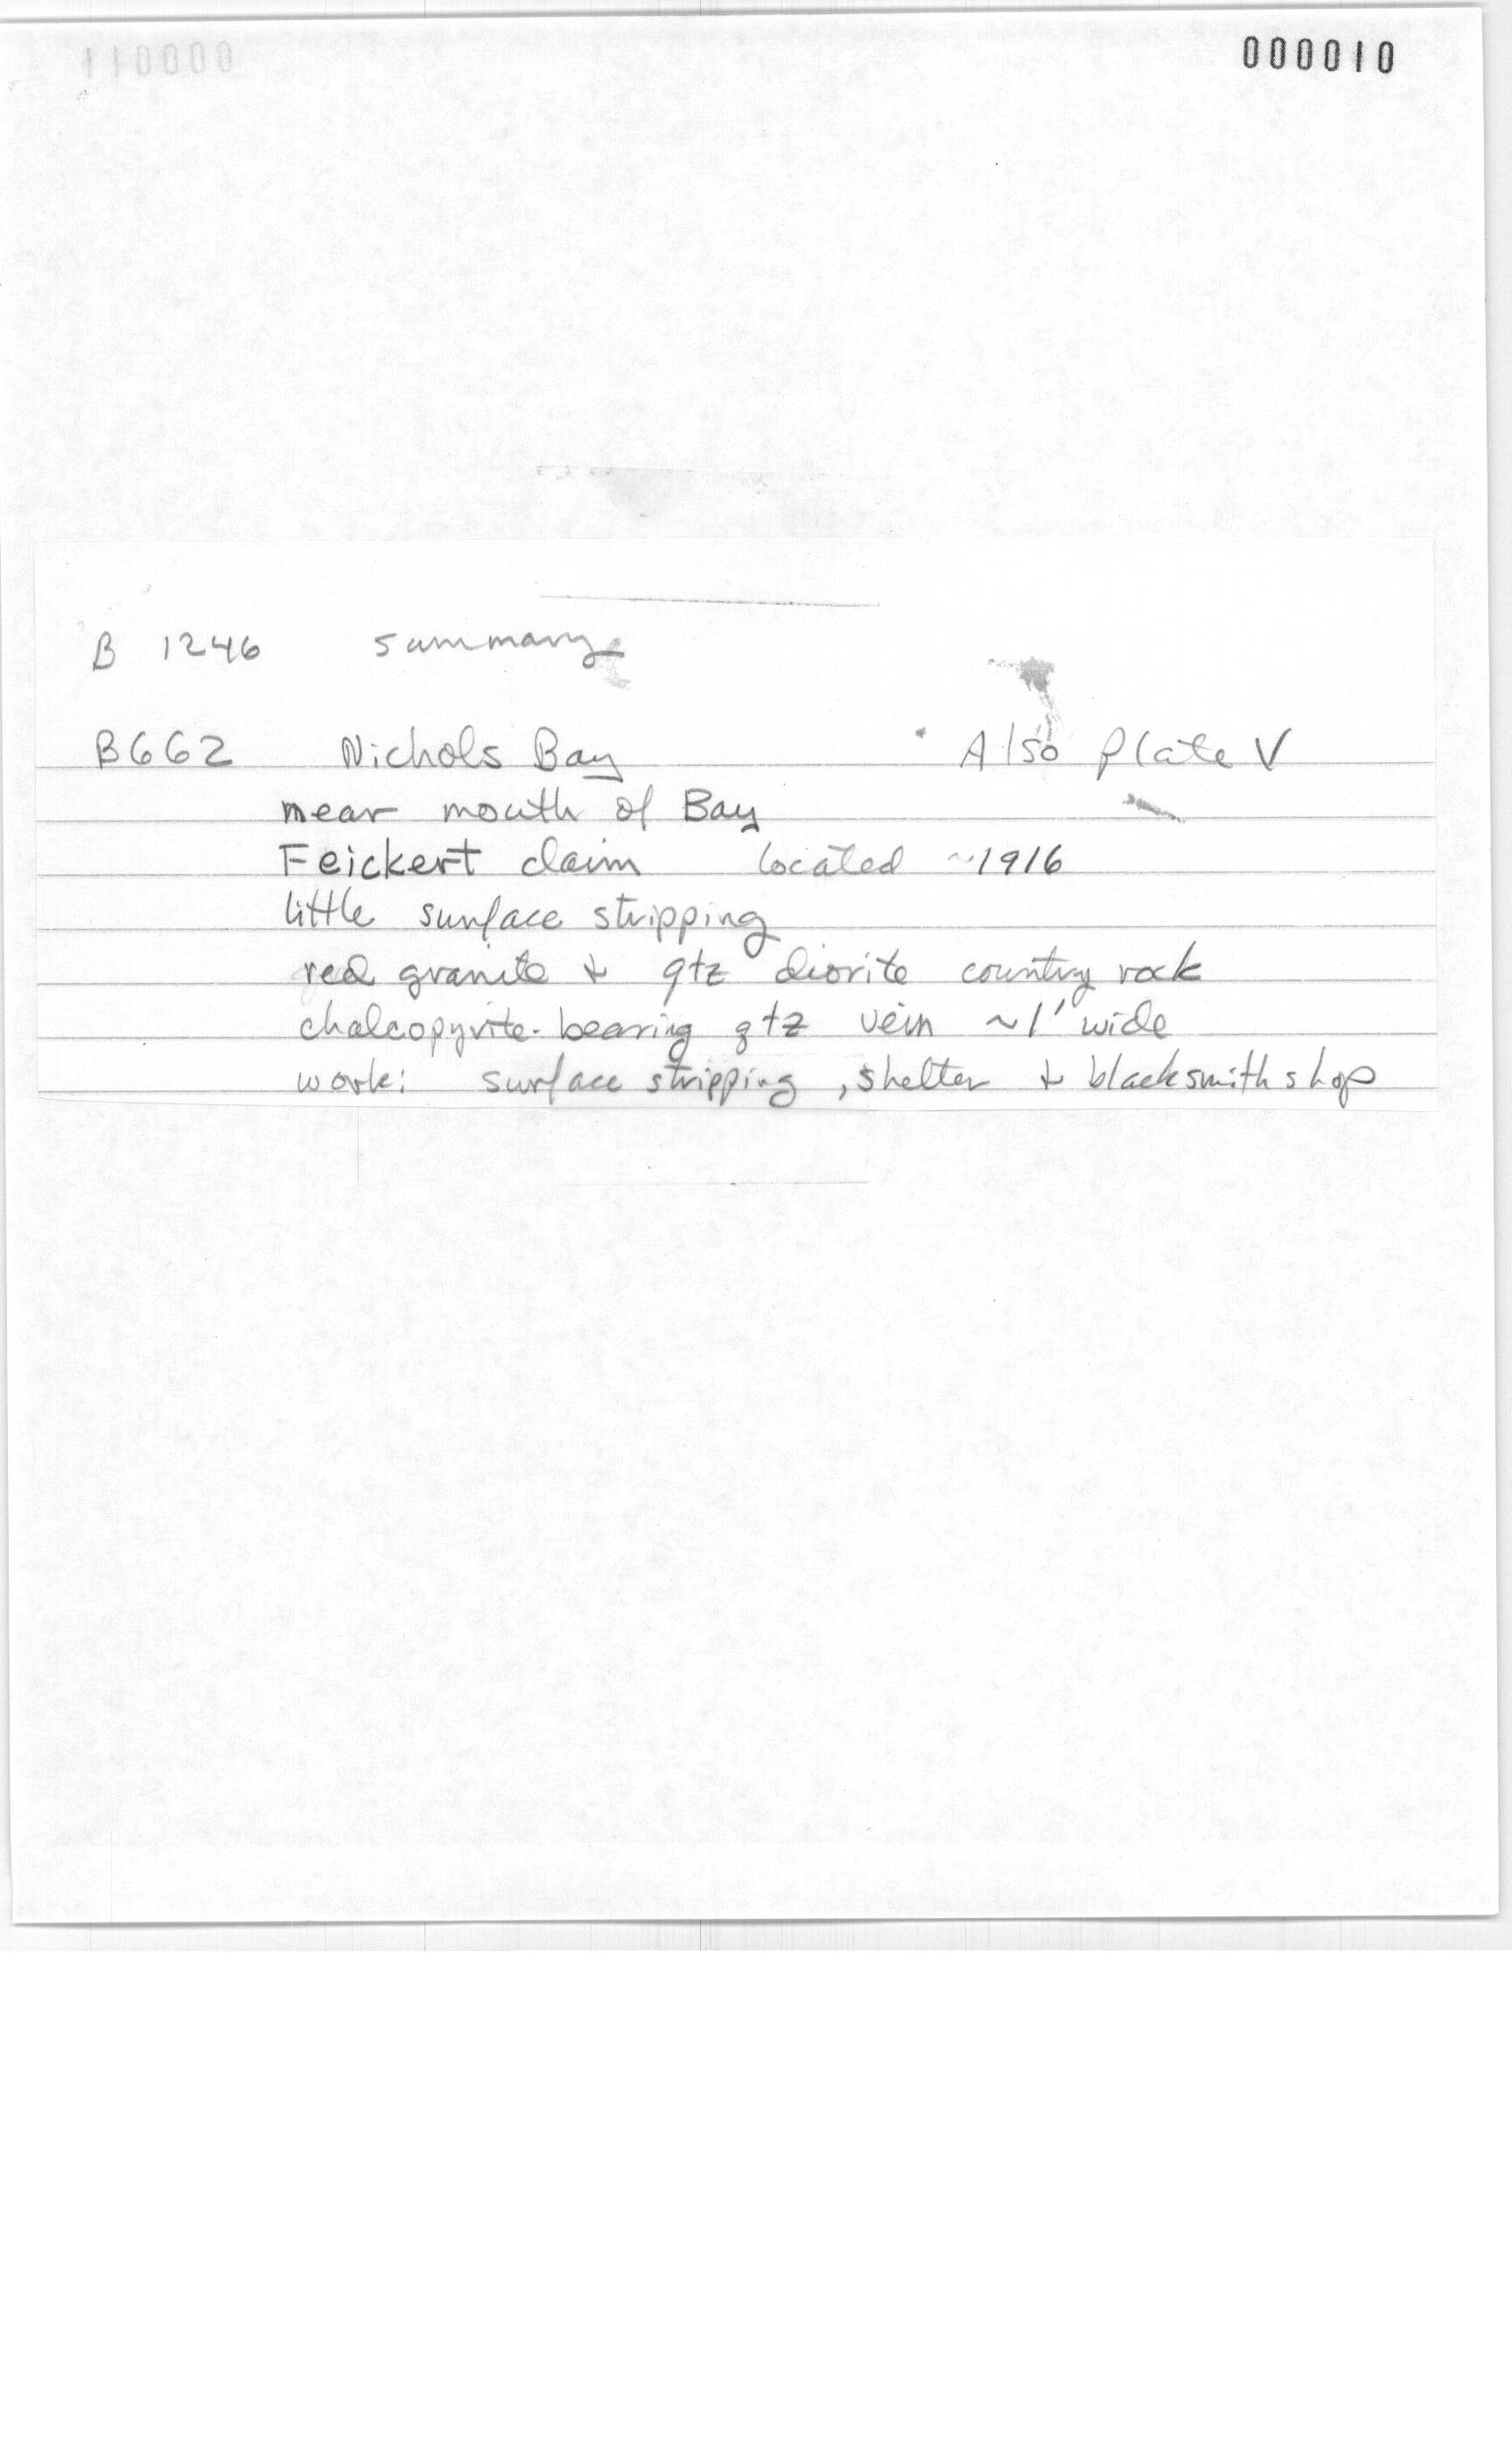 110000
000010
B 1246 summary
B662 Nichols Bay Also Plate V
near mouth of Bay
Feickert claim located ~1916
little surface stripping
red granite & qtz diorite country rock
chalcopyrite-bearing qtz vein ~1' wide
work: surface stripping, shelter & blacksmith shop